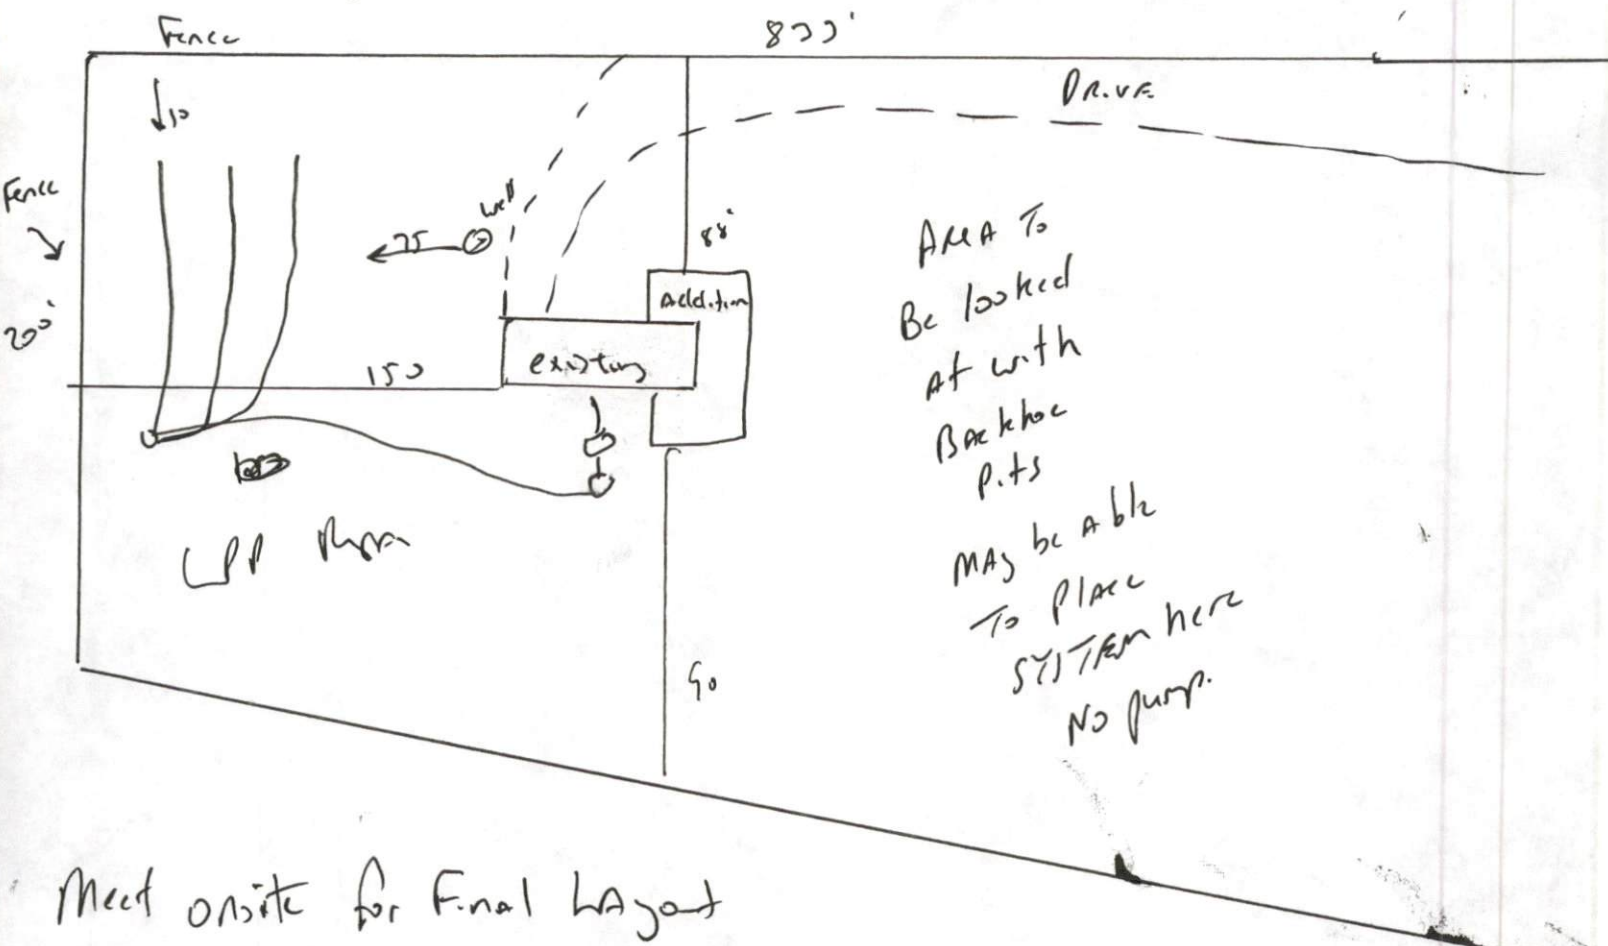 Fence
833'
DRIVE
10
Fence
200'
well
75
88'
Addition
existing
150
LPP
90
AREA To
Be looked
At with
Backhoe
Pits
MAy be Able
To Place
SYSTEM here
No pump.
Meet onsite for Final LAyout